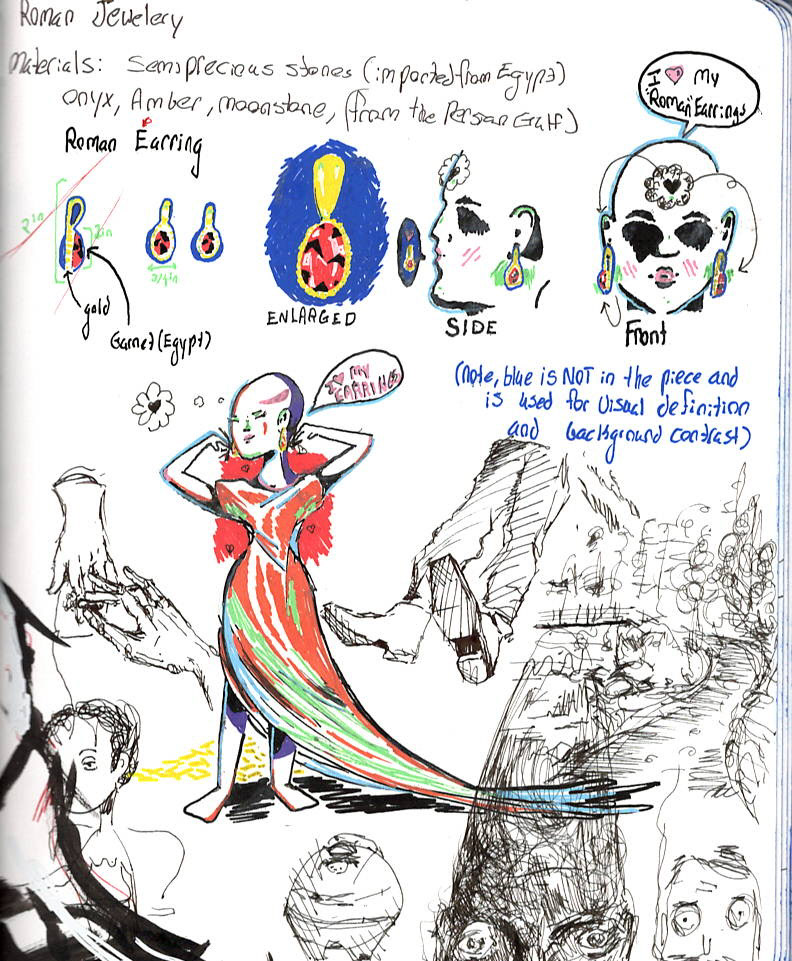 Roman Jewelery
Materials: Semiprecious stones (imported from Egypt)
onyx, Amber, moonstone, (from the Persian Gulf)
I ♥ My
"Roman" Earrings
Roman Earring
2in
3/4in
gold
Garnet (Egypt)
ENLARGED
SIDE
Front
(note, blue is NOT in the piece and
is used for visual definition
and background contrast)
I ♥ MY
EARRINGS